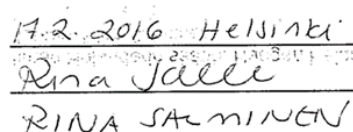 17.2.2016 Helsinki
Rina
RINA SALMINEN